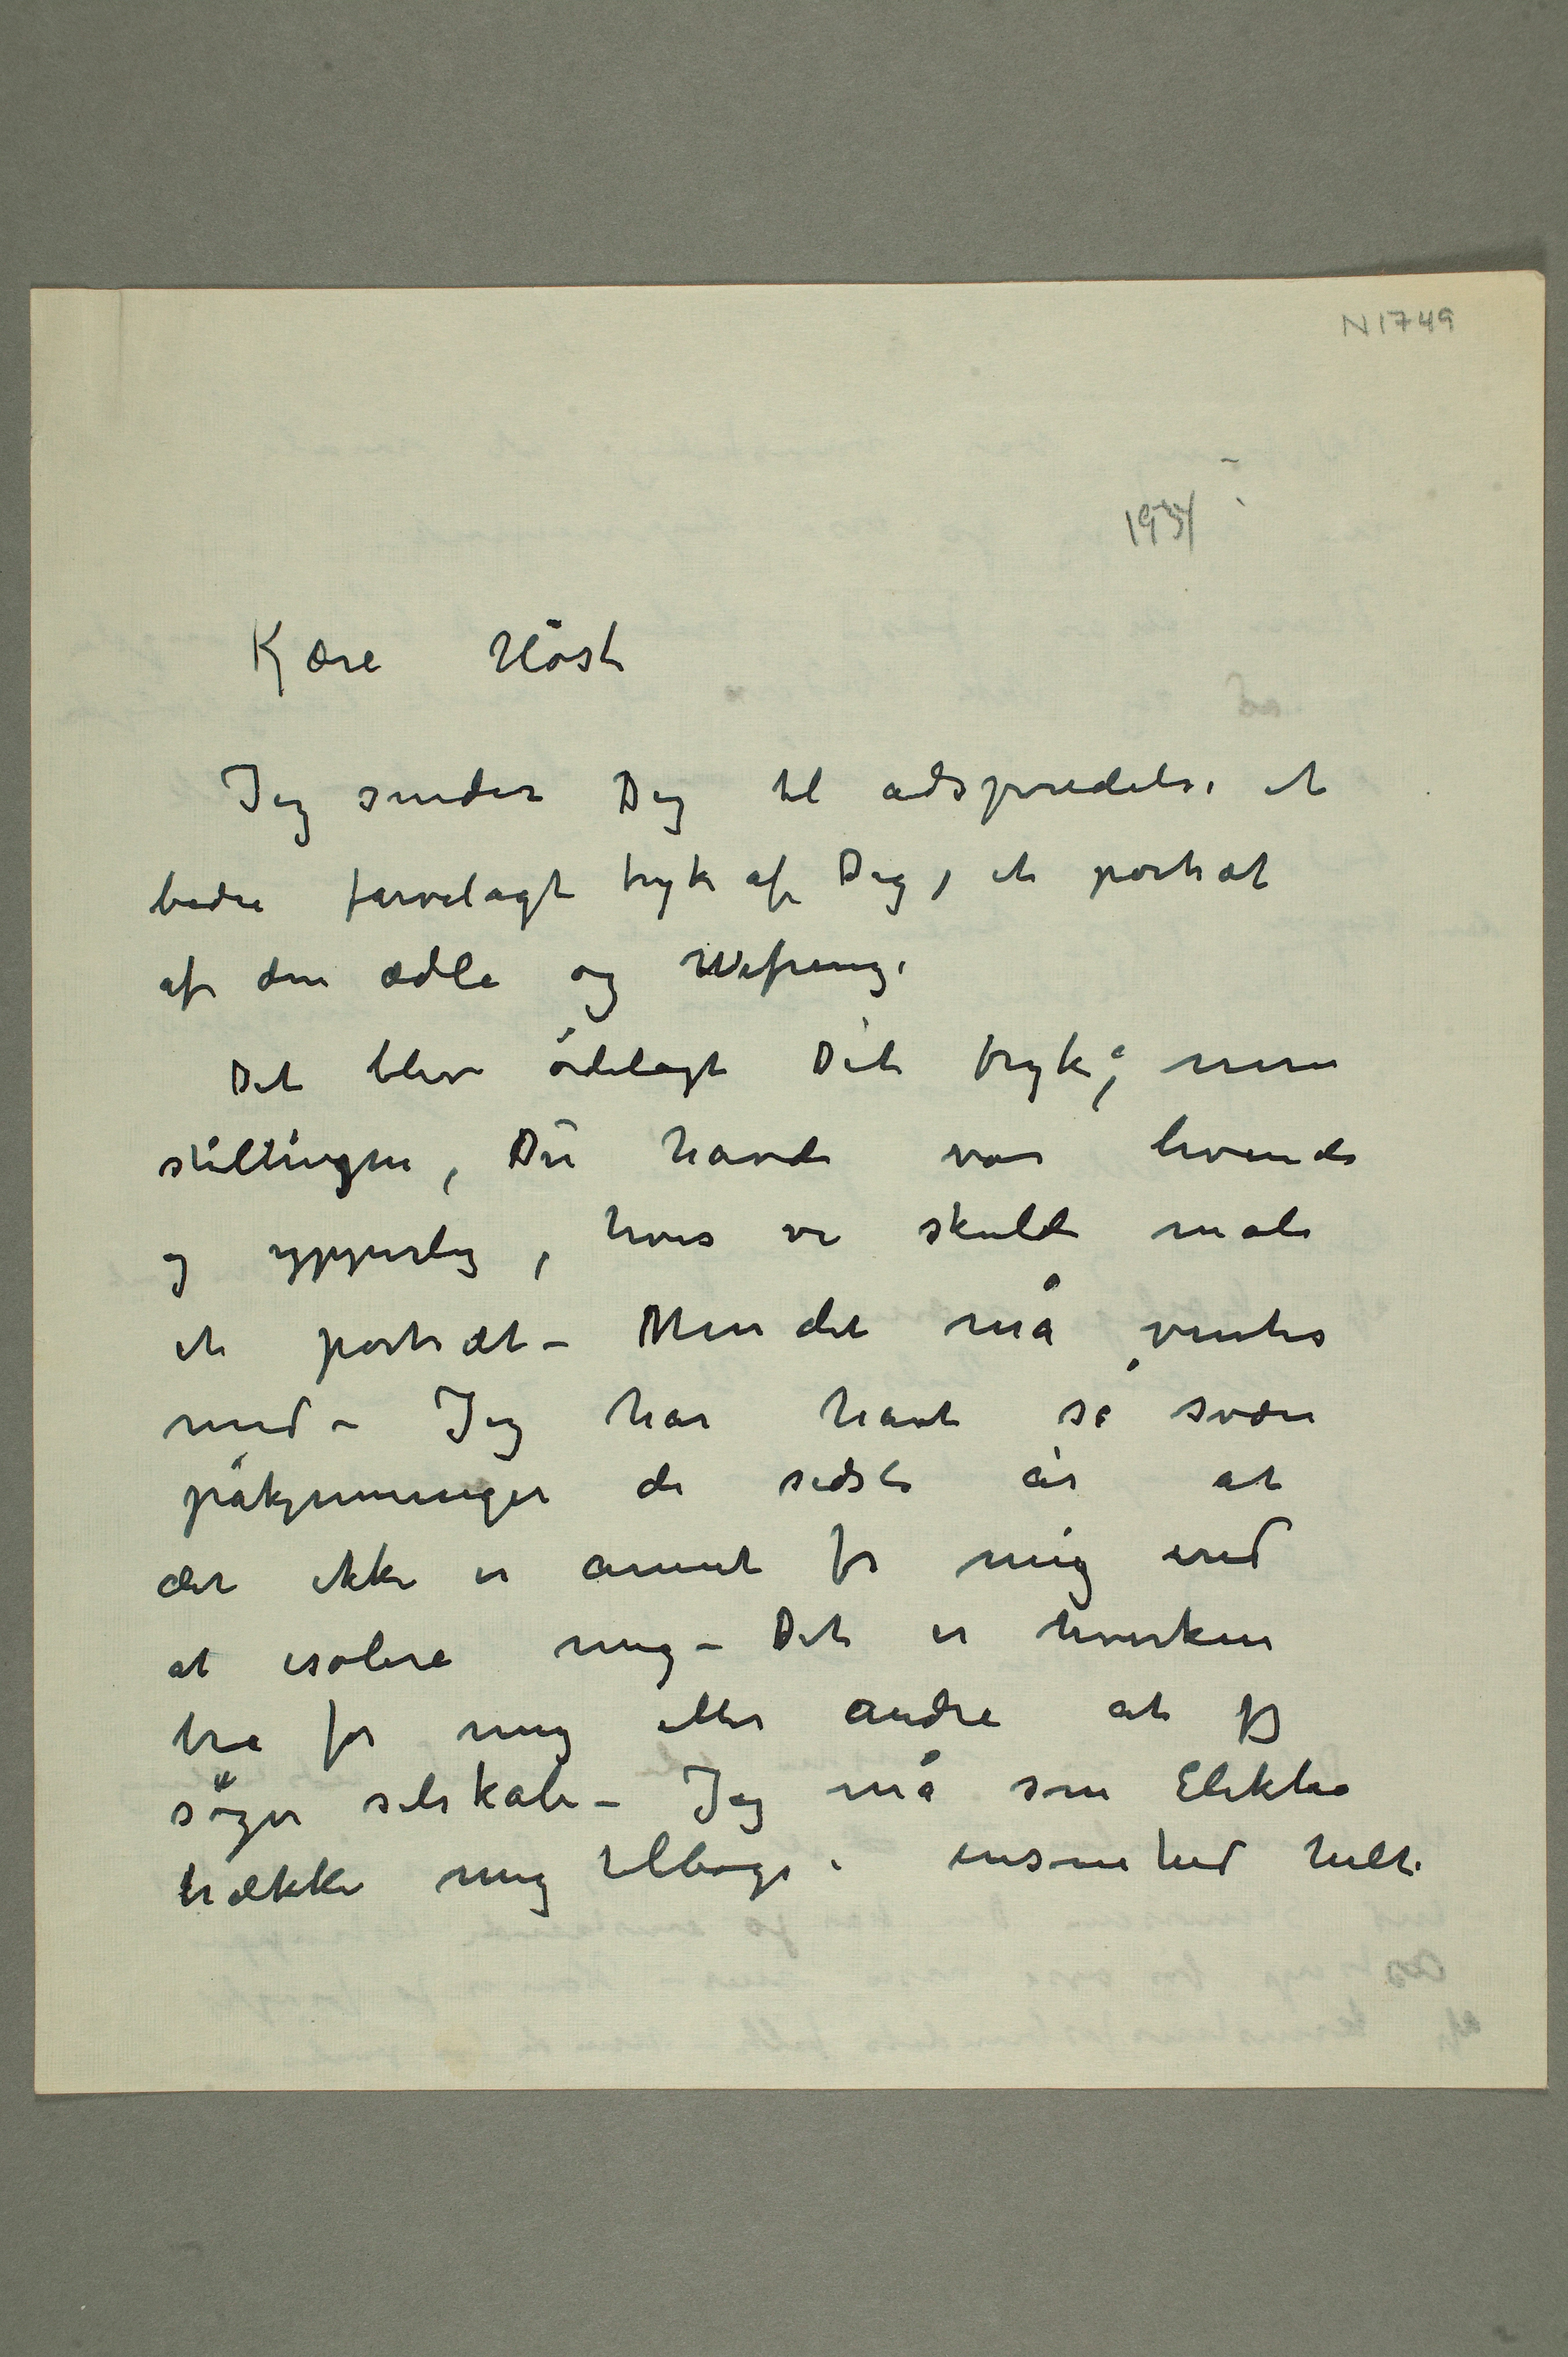 N 1749
1934
Kjære Höst
Jeg sender Deg til adspredelse et
bedre farvelagt tryk af Dig, et portræt
af den ædle og Wefring.
Det blev ödelagt Dit tryk, men
stillingen, Du havde var levende
og ypperlig, hvis vi skulde male
et portræt – Men det må ventes
med – Jeg har havt så svære
påkjenninger de sidste år at
der ikke er annet for mig end
at isolere mig – Det er hverken
bra for mig eller andre at jeg
søger selskabe – Jeg må som Elektra
trække mig tilbage i ensomhed helt.